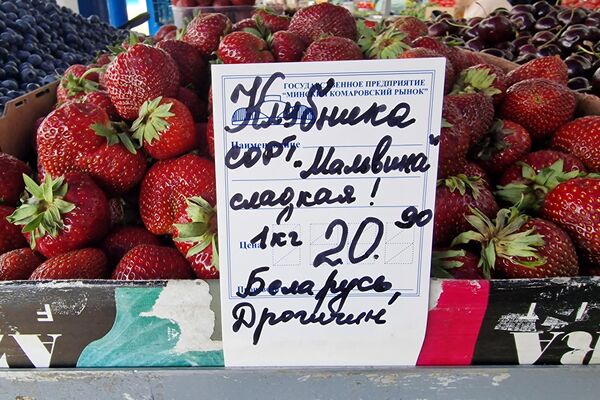 ГОСУДАРСТВЕННОЕ ПРЕДПРИЯТИЕ
"МИНСКИЙ КОМАРОВСКИЙ РЫНОК"
Клубника
Наименование
СОРТ. "Мальвина"
сладкая!
Цена 1 кг 20.90
Беларусь,
Дрогичин